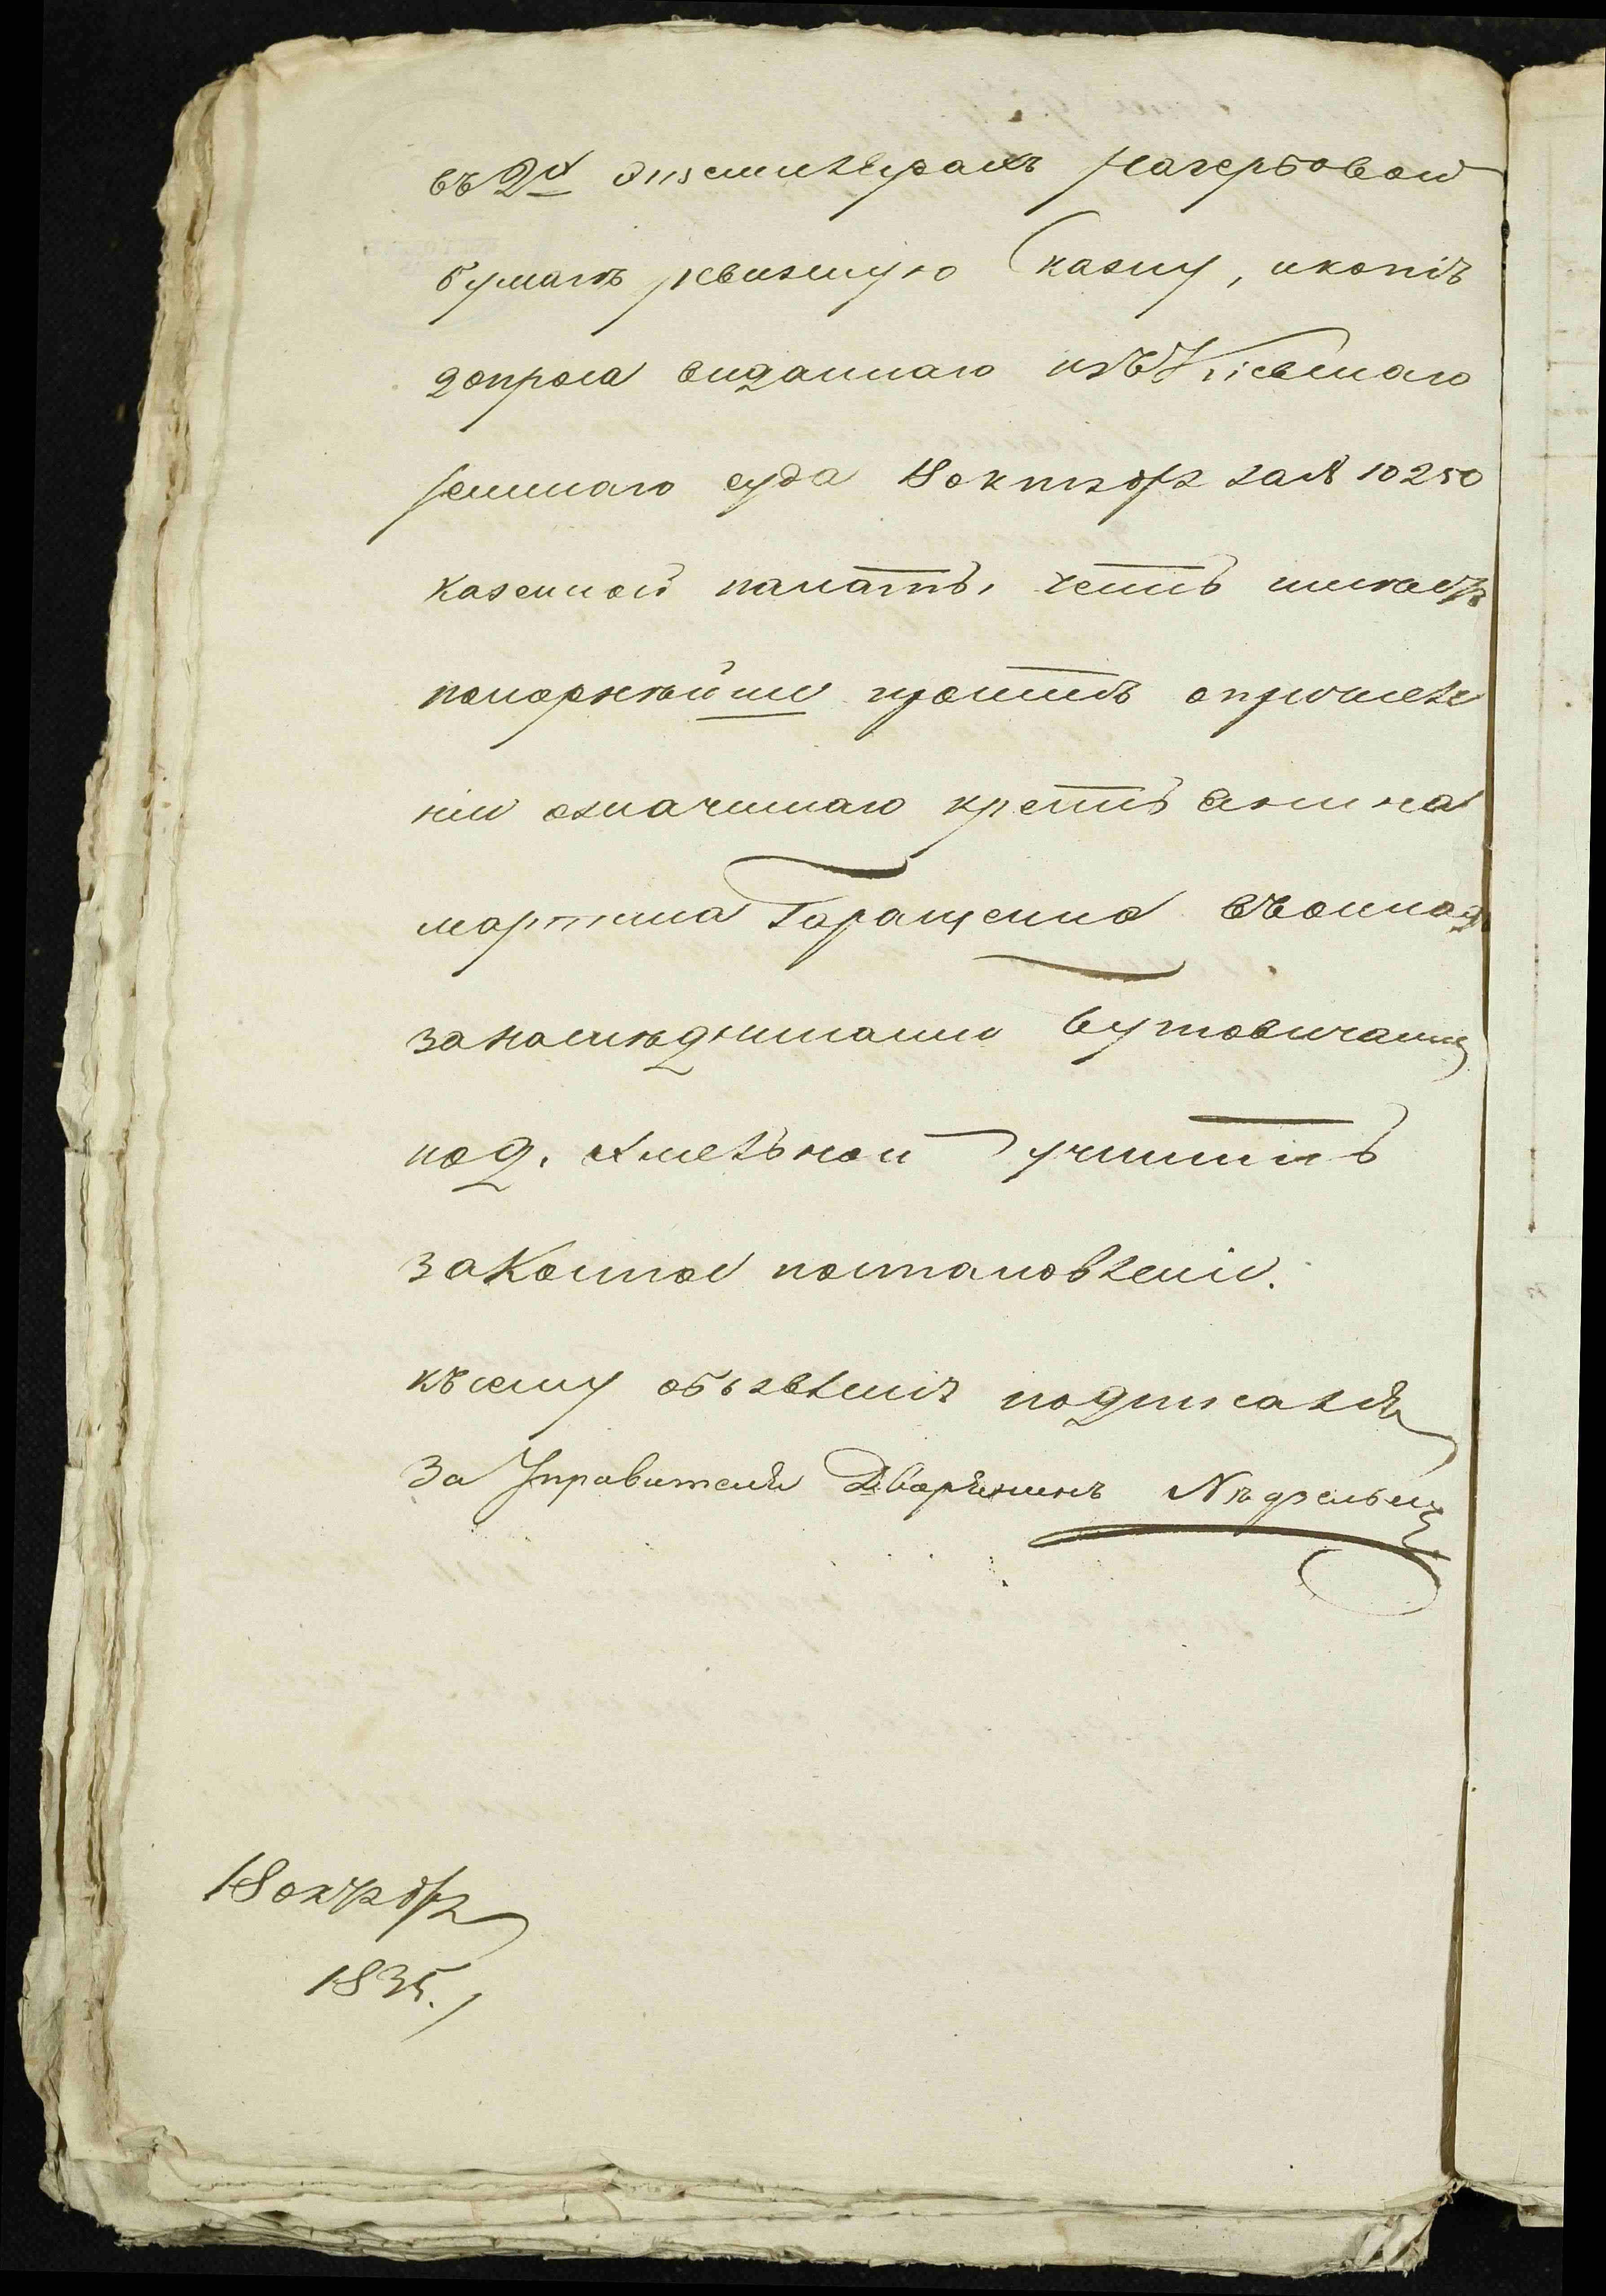 въ 2х экземплярахъ нагербовой
бумагѣ ревизкую Сказку, икопію
допроса виданнаго изъ Кіевскаго
земскаго суда 18 октября за № 10250
казенной палатѣ, честь имѣю
покорнѣйше просить опричисле
ніи означеннаго крестьянина
мартина Геращенка въоклад
занаслѣдниками Бутовичами
под. Хмельной учинить
законное постановленіе.
къ сему объявленію подписался
За Управителя Дворянинъ
18 октября
1835.